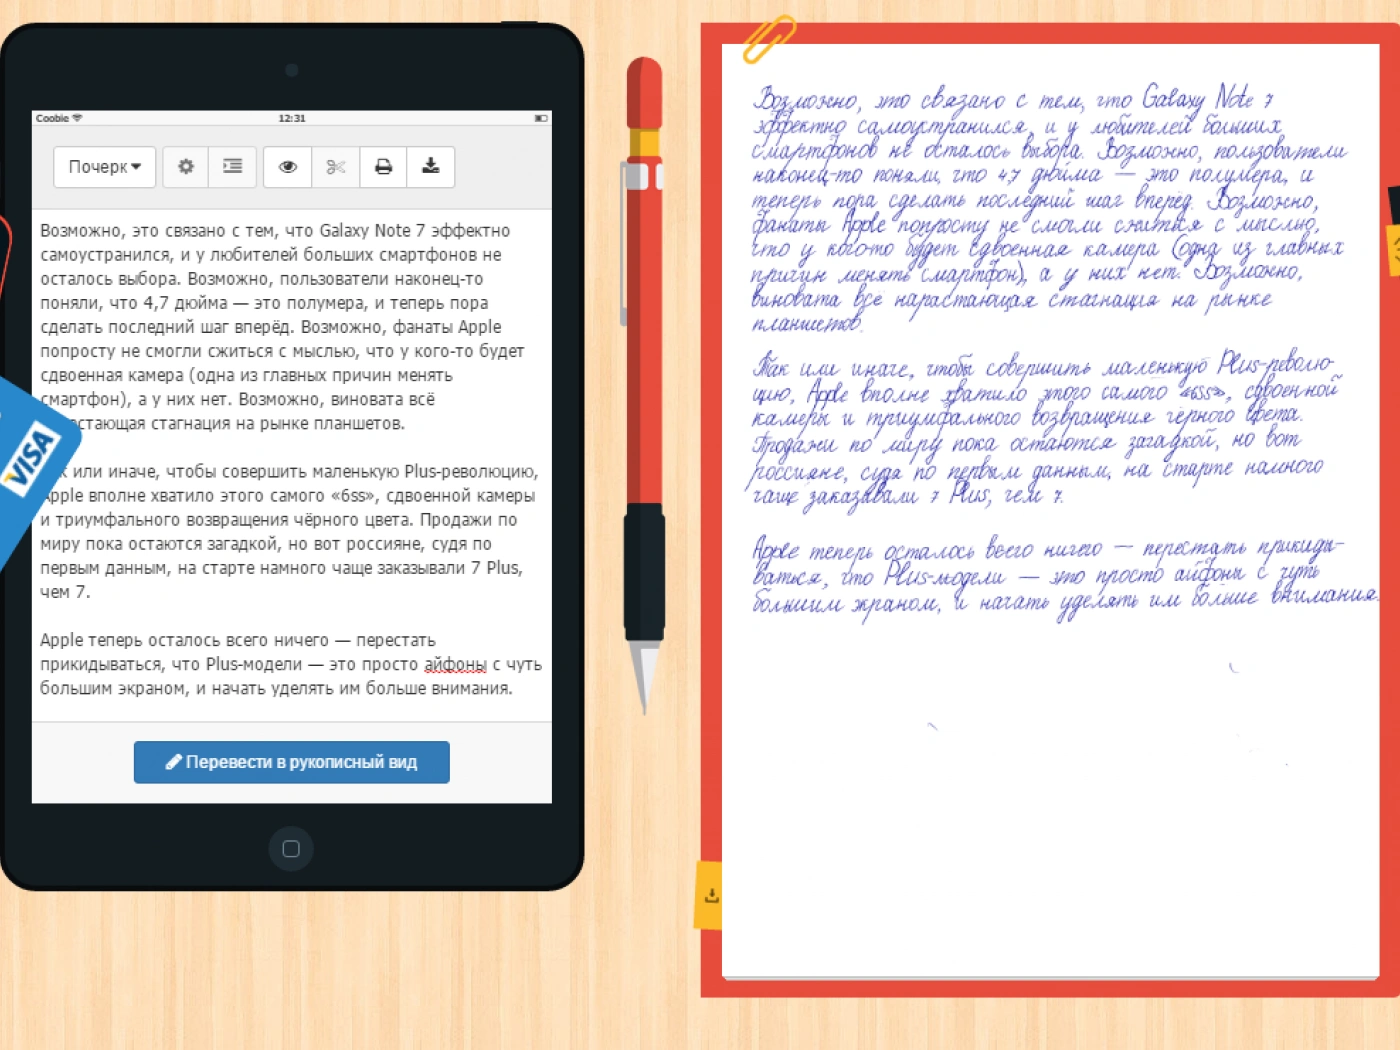 Coobie
12:31
Почерк
Возможно, это связано с тем, что Galaxy Note 7 эффектно
самоустранился, и у любителей больших смартфонов не
осталось выбора. Возможно, пользователи наконец-то
поняли, что 4,7 дюйма — это полумера, и теперь пора
сделать последний шаг вперёд. Возможно, фанаты Apple
попросту не смогли сжиться с мыслью, что у кого-то будет
сдвоенная камера (одна из главных причин менять
смартфон), а у них нет. Возможно, виновата всё
стающая стагнация на рынке планшетов.
или иначе, чтобы совершить маленькую Plus-революцию,
Apple вполне хватило этого самого «6ss», сдвоенной камеры
и триумфального возвращения чёрного цвета. Продажи по
миру пока остаются загадкой, но вот россияне, судя по
первым данным, на старте намного чаще заказывали 7 Plus,
чем 7.
Apple теперь осталось всего ничего — перестать
прикидываться, что Plus-модели — это просто айфоны с чуть
большим экраном, и начать уделять им больше внимания.
Перевести в рукописный вид
VISA
Возможно, это связано с тем, что Galaxy Note 7
эффектно самоустранился, и у любителей больших
смартфонов не осталось выбора. Возможно, пользователи
наконец-то поняли, что 4,7 дюйма — это полумера, и
теперь пора сделать последний шаг вперёд. Возможно,
фанаты Apple попросту не смогли сжиться с мыслью,
что у кого-то будет сдвоенная камера (одна из главных
причин менять смартфон), а у них нет. Возможно,
виновата всё нарастающая стагнация на рынке
планшетов.
Так или иначе, чтобы совершить маленькую Plus-револю-
цию, Apple вполне хватило этого самого «6ss», сдвоенной
камеры и триумфального возвращения чёрного цвета.
Продажи по миру пока остаются загадкой, но вот
россияне, судя по первым данным, на старте намного
чаще заказывали 7 Plus, чем 7.
Apple теперь осталось всего ничего — перестать прикиды-
ваться, что Plus-модели — это просто айфоны с чуть
большим экраном, и начать уделять им больше внимания.